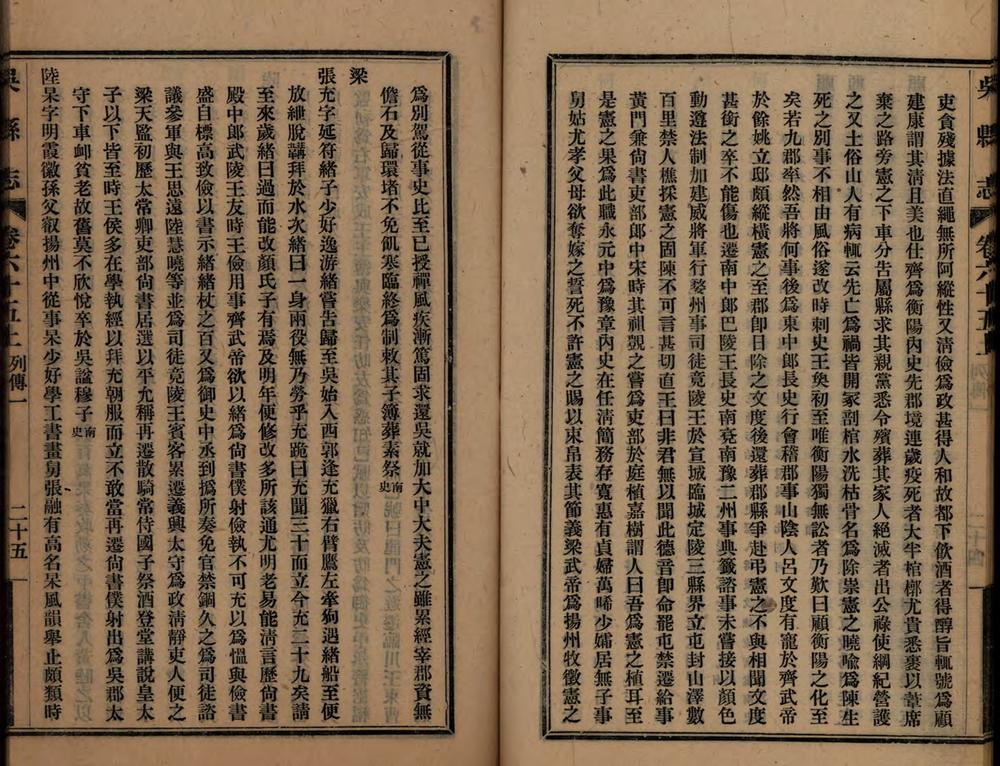 吳縣志 卷六十五上 列傳一
吏貪殘據法直繩無所阿縱性又清儉爲政甚得人和故都下飲酒者得醇旨輒號爲顧
建康謂其清且美也仕齊爲衡陽內史先郡境連歲疫死者大半棺槨尤貴悉裹以葦席
棄之路旁憲之下車分告屬縣求其親黨悉令殯葬其家人絕滅者出公祿使綱紀營護
之又土俗山人有病輒云先亡爲禍皆開冢剖棺水洗枯骨名爲除祟憲之曉喻爲陳生
死之別事不相由風俗遂改時刺史王奐初至唯衡陽獨無訟者乃歎曰顧衡陽之化至
矣若九郡率然吾將何事後爲東中郎長史行會稽郡事山陰人呂文度有寵於齊武帝
於餘姚立邸頗縱橫憲之至郡卽日除之文度後還葬郡縣爭赴弔憲之不與相聞文度
甚銜之卒不能傷也遷南中郎巴陵王長史南兗南豫二州事典籤諮事未嘗接以顏色
動遵法制加建威將軍行婺州事司徒竟陵王於宣城臨城定陵三縣界立屯封山澤數
百里禁人樵採憲之固陳不可言甚切直王曰非君無以聞此德音卽命罷屯禁遷給事
黃門兼尙書吏部郎中宋時其祖覬之嘗爲吏部於庭植嘉樹謂人曰吾爲憲之植耳至
是憲之果爲此職永元中爲豫章內史在任清簡務存寬惠有貞婦萬晞少孀居無子事
舅姑尤孝父母欲奪嫁之誓死不許憲之賜以束帛表其節義梁武帝爲揚州牧徵憲之
爲別駕從事史比至已授禪風疾漸篤固求還吳就加大中大夫憲之雖累經宰郡資無
儋石及歸環堵不免飢寒臨終爲制敕其子薄葬素祭南史
梁
張充字延符緒子少好逸游緒嘗告歸至吳始入西郭逢充獵右臂鷹左牽狗遇緒船至便
放紲脫韝拜於水次緒曰一身兩役無乃勞乎充跪曰充聞三十而立今充二十九矣請
至來歲緒曰過而能改顏氏子有焉及明年便修改多所該通尤明老易能清言歷尙書
殿中郎武陵王友時王儉用事齊武帝欲以緒爲尙書僕射儉執不可充以爲慍與儉書
盛自標高致儉以書示緒緒杖之百又爲御史中丞到撝所奏免官禁錮久之爲司徒諮
議參軍與王思遠陸慧曉等並爲司徒竟陵王賓客累遷義興太守爲政清靜吏人便之
梁天監初歷太常卿吏部尙書居選以平允稱再遷散騎常侍國子祭酒登堂講說皇太
子以下皆至時王侯多在學執經以拜充朝服而立不敢當再遷尙書僕射出爲吳郡太
守下車䘏貧老故舊莫不欣悅卒於吳諡穆子南史
陸杲字明霞徽孫父叡揚州中從事杲少好學工書畫舅張融有高名杲風韻舉止頗類時
吳縣志 卷六十五上 列傳一 二十五